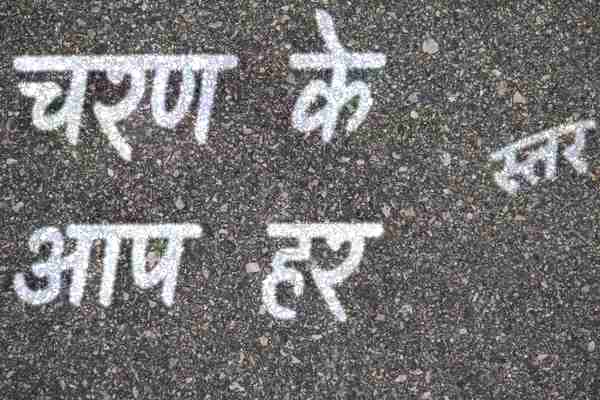 चरण के
स्तर
आप हर